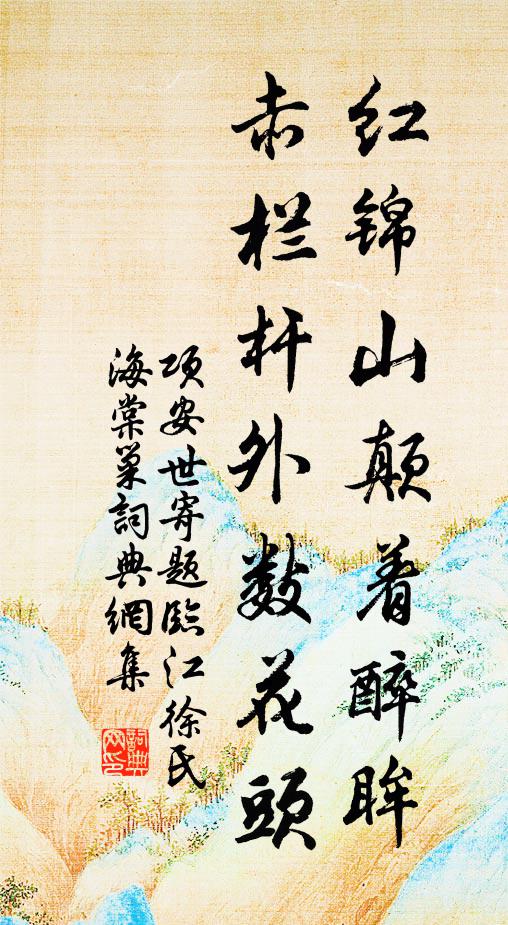 红锦山颠着醉眸
赤栏杆外数花头
项安世寄题臨江徐氏
海棠巢詞典網集
詞典
网印